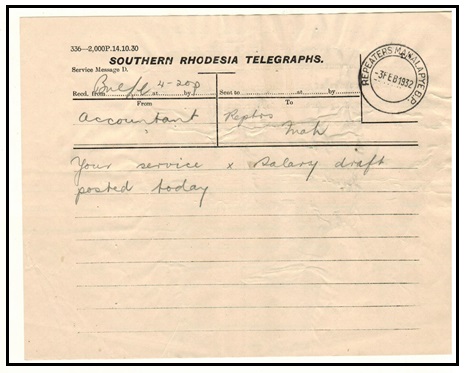 336—2,000P.14.10.30
SOUTHERN RHODESIA TELEGRAPHS.
Service Message D.
Recd. from Bulfl at 4-20p by
Sent to at by
From
To
Accountant
Reptrs
Mah
REPEATERS MAHALAPYE B.P.
-3FEB1932
Your service x Salary draft
posted today